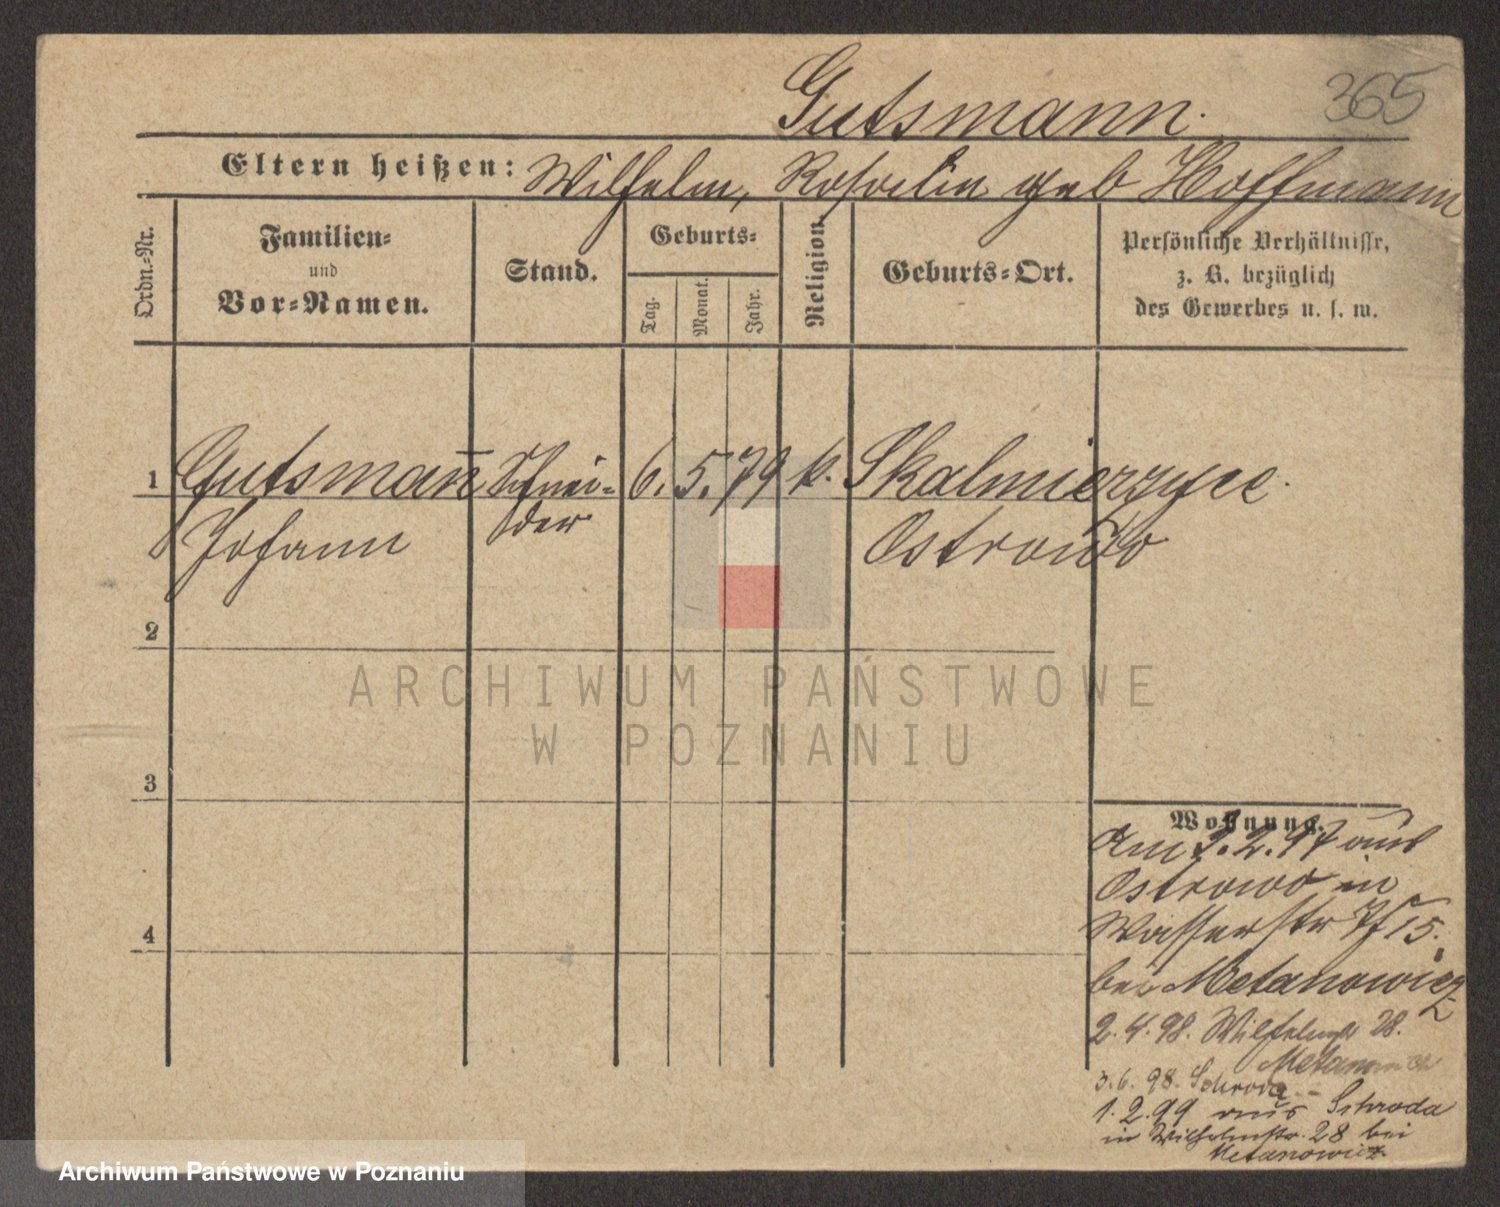 Gutsmann.
365
Eltern heißen: Wilhelm, Rosalin geb Hoffmann
Ordn.=Nr.
Familien=
und
Vor=Namen.
Stand.
Geburts=
Tag.
Monat.
Jahr.
Religion.
Geburts=Ort.
Persönliche Verhältnisse,
z. B. bezüglich
des Gewerbes u. s. w.
1 Gutsman̅ Schnei= 6. 5. 79 k. Skalmierzyce.
Johann der Ostrowo
2
3
4
Wohnung.
Am 2. 2. 97 aus
Ostrowo in
Wasserstr 15.
bei Metanowicz
2. 4. 98. Wilhelmstr 28.
Metanowicz
3. 6. 98. Schroda
1. 2. 99 aus Schroda
in Wilhelmstr. 28 bei
Metanowicz.
ARCHIWUM PAŃSTWOWE
W POZNANIU
Archiwum Państwowe w Poznaniu